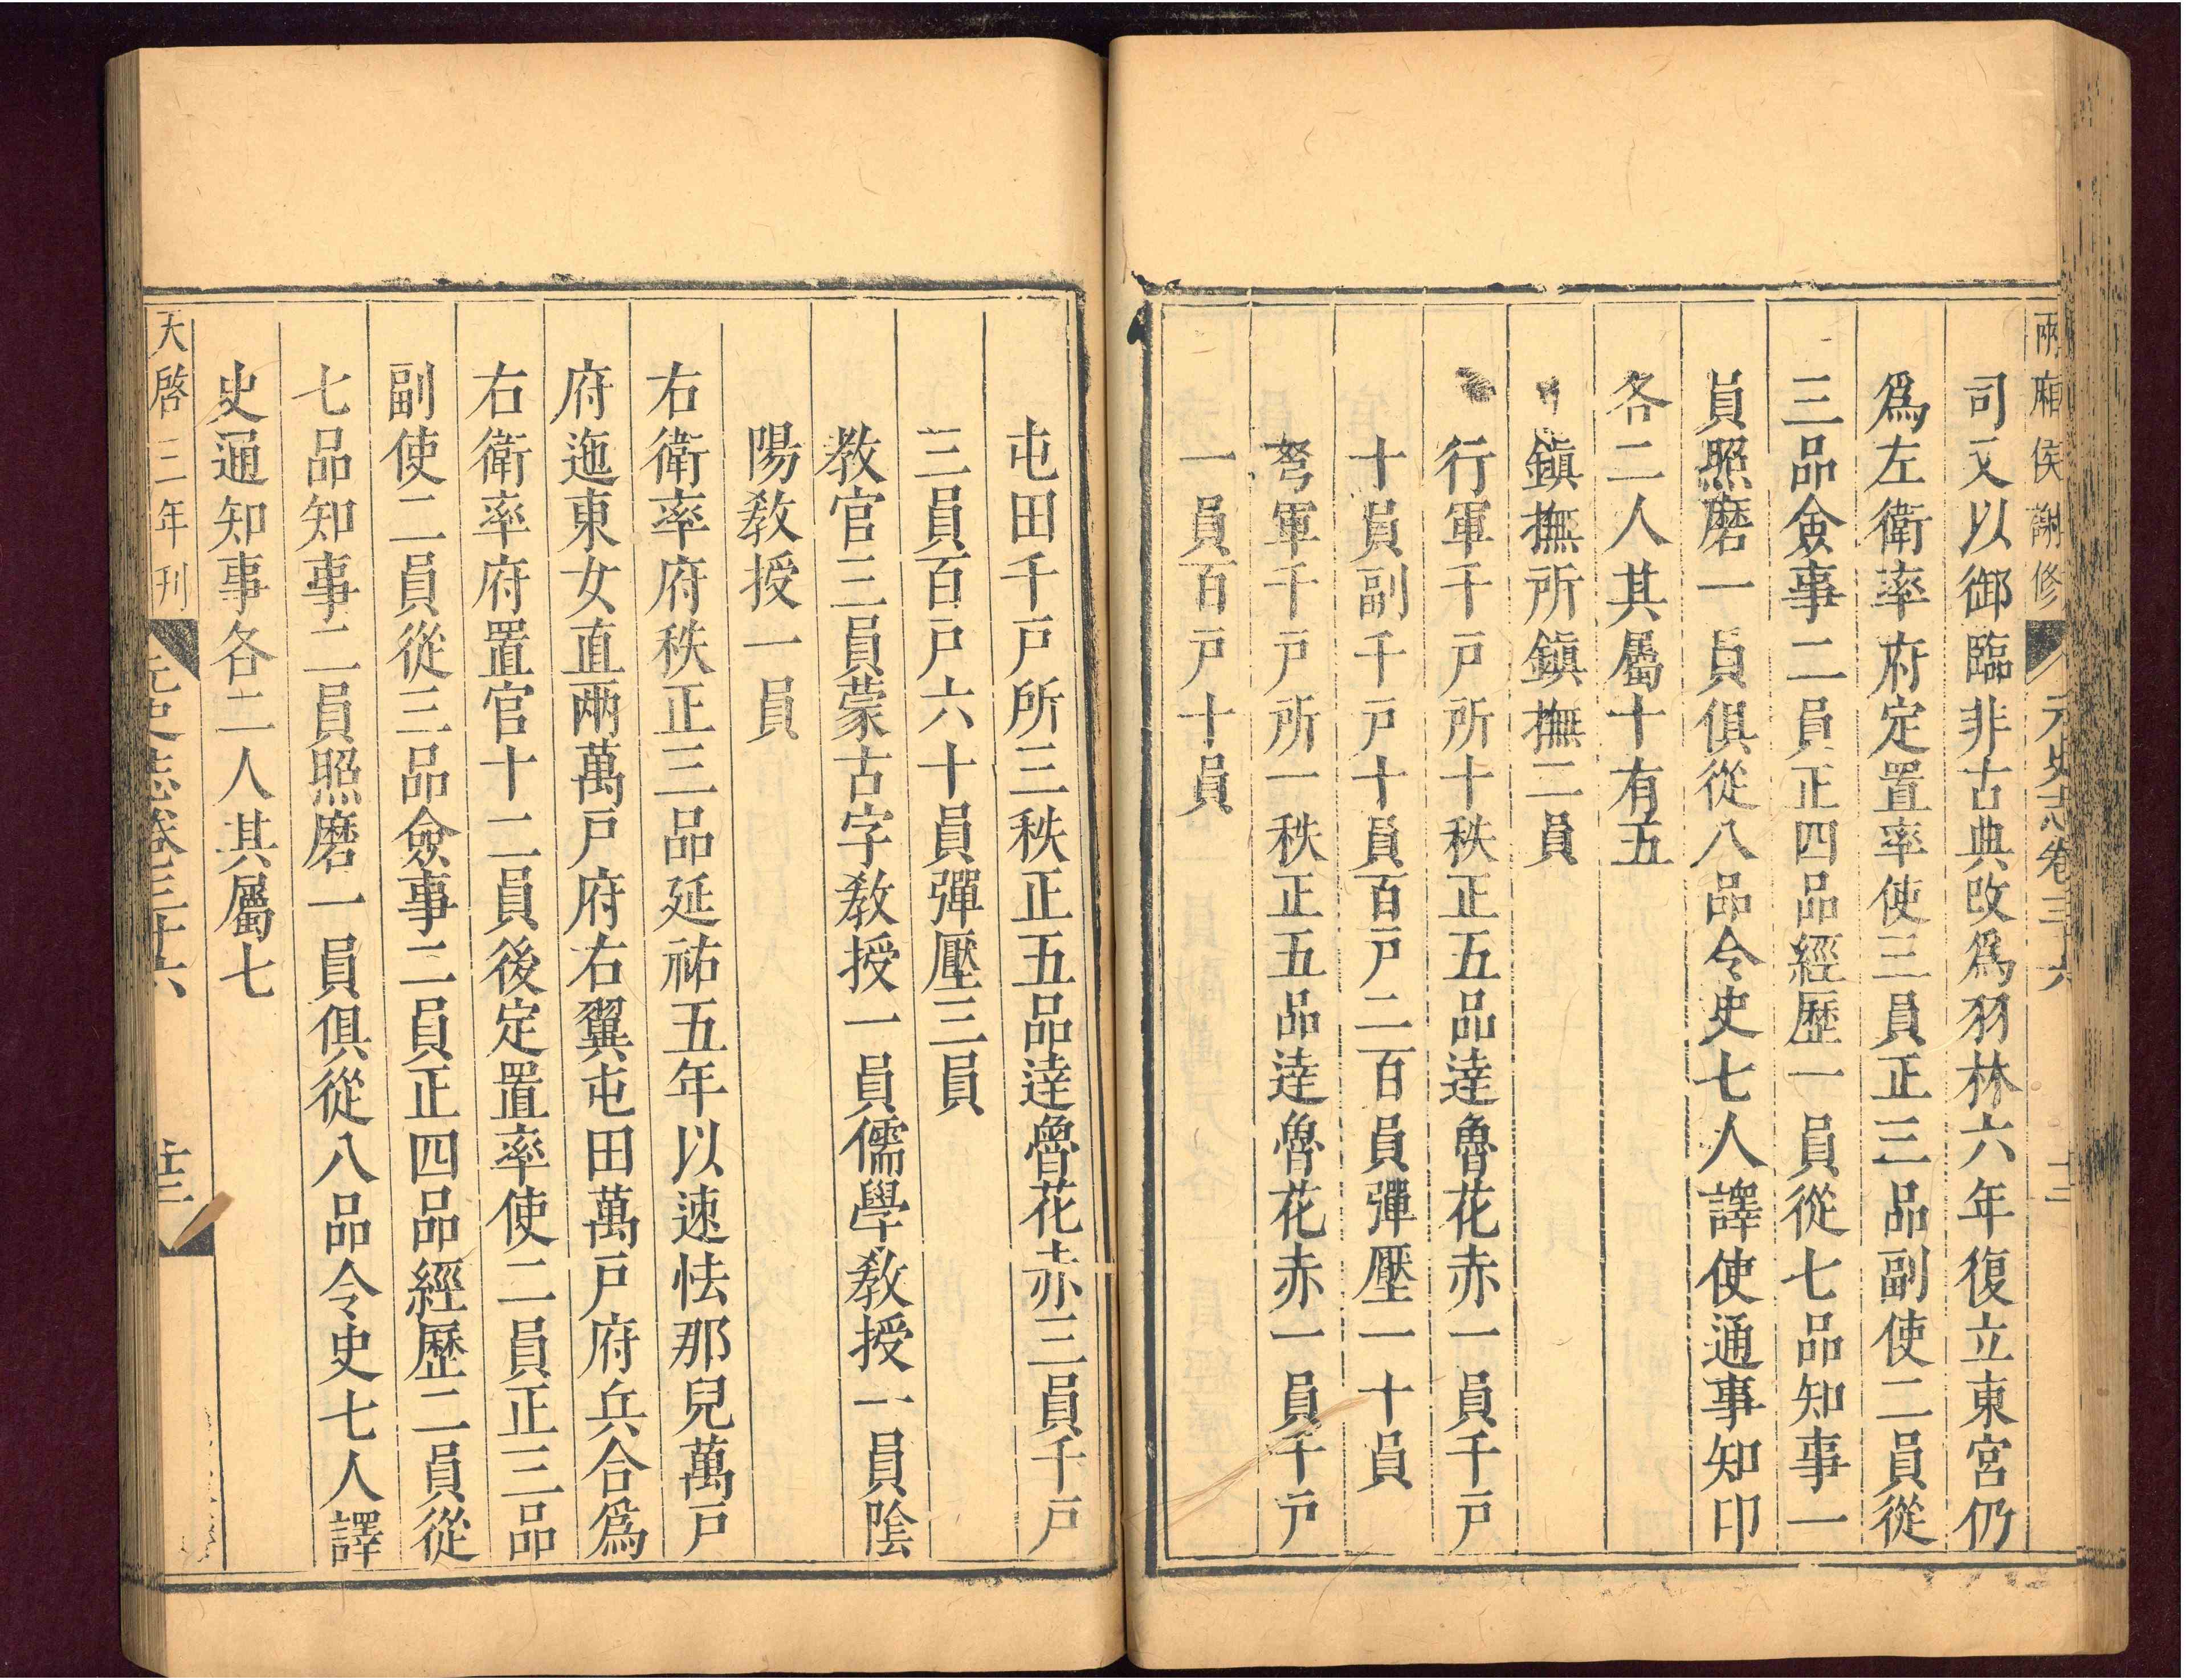 兩廂侯謝修 元史志卷三十六 十二
司又以御臨非古典改爲羽林六年復立東宮仍
爲左衛率府定置率使三員正三品副使二員從
三品僉事二員正四品經歷一員從七品知事一
員照磨一員俱從八品令史七人譯使通事知印
各二人其屬十有五
鎭撫所鎭撫二員
行軍千戸所十秩正五品達魯花赤一員千戸
十員副千戸十員百戸二百員彈壓一十員
弩軍千戸所一秩正五品達魯花赤一員千戸
一員百戸十員
屯田千戸所三秩正五品達魯花赤三員千戸
三員百戸六十員彈壓三員
教官三員蒙古字敎授一員儒學敎授一員陰
陽敎授一員
右衛率府秩正三品延祐五年以速怯那兒萬戸
府迤東女直兩萬戸府右翼屯田萬戸府兵合爲
右衛率府置官十二員後定置率使二員正三品
副使二員從三品僉事二員正四品經歷二員從
七品知事二員照磨一員俱從八品令史七人譯
史通知事各二人其屬七
天啓三年刊 元史志卷三十六